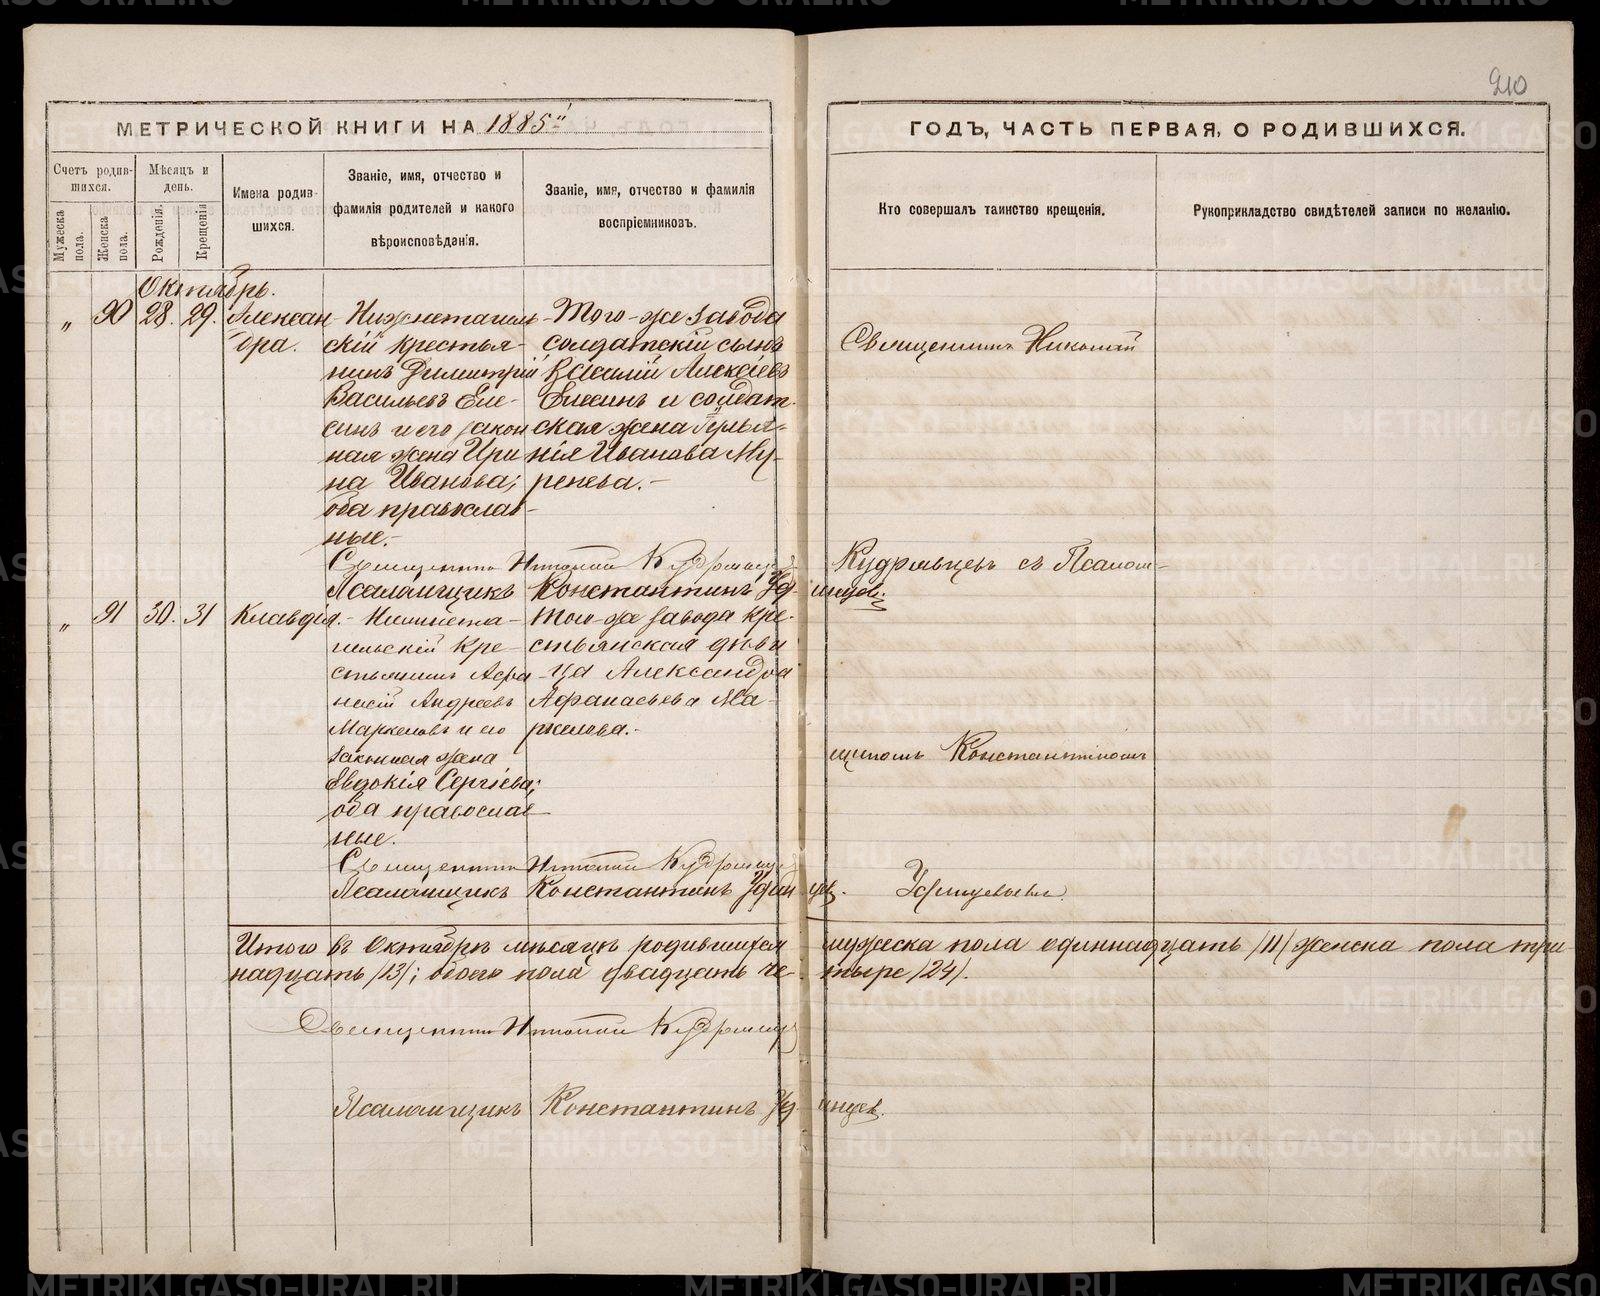 210
МЕТРИЧЕСКОЙ КНИГИ НА 1885й
ГОДЪ, ЧАСТЬ ПЕРВАЯ, О РОДИВШИХСЯ.
Счетъ родив-
шихся.
Мужеска
пола.
Женска
пола.
Мѣсяцъ и
день.
Рожденія.
Крещенія
Имена родив-
шихся.
Званіе, имя, отчество и
фамилія родителей и какого
вѣроисповѣданія.
Званіе, имя, отчество и фамилія
воспріемниковъ.
Кто совершалъ таинство крещенія.
Рукоприкладство свидѣтелей записи по желанію.
Октябрь.
„ 90 28. 29. Алексан
дра.
Нижнетагиль-
скій крестья-
нинъ Димитрій
Васильевъ Еле-
синъ и его закон
ная жена Ири
на Иванова;
оба православ-
ные.-
Того-же завода
солдатскій сынъ
Василій Алексіевъ
Елесинъ и солдат
ская жена
нія Иванова Му-
ренева.-
Священникъ Николай
Кудрявцевъ съ Псалом-
Священникъ Николай Кудрявцевъ
Псаломщикъ Константинъ Уф-
инцев.
„ 91 30. 31 Клавдія.-
Нижнета-
гильскій кре-
стьянинъ Афа
насій Андреевъ
Маркеловъ и его
законная жена
Евдокія Сергіева;
оба православ-
ные.
Того-же завода кре-
стьянская дѣви
ца Александра
Афанасьева Ма-
ркелова.-
щикомъ Константиномъ
Уфинцевымъ.
Священникъ Николай Кудрявцевъ
Псаломщикъ Константинъ Уфин
цев.
Итого въ Октябрѣ мѣсяцѣ родившихся мужеска пола одиннадцать /11/ женска пола три-
надцать /13/; обоего пола двадцать че- тыре /24/.
Священникъ Николай Кудрявцевъ
Псаломщикъ Константинъ Уф- инцев.
METRIKI.GASO-URAL.RU